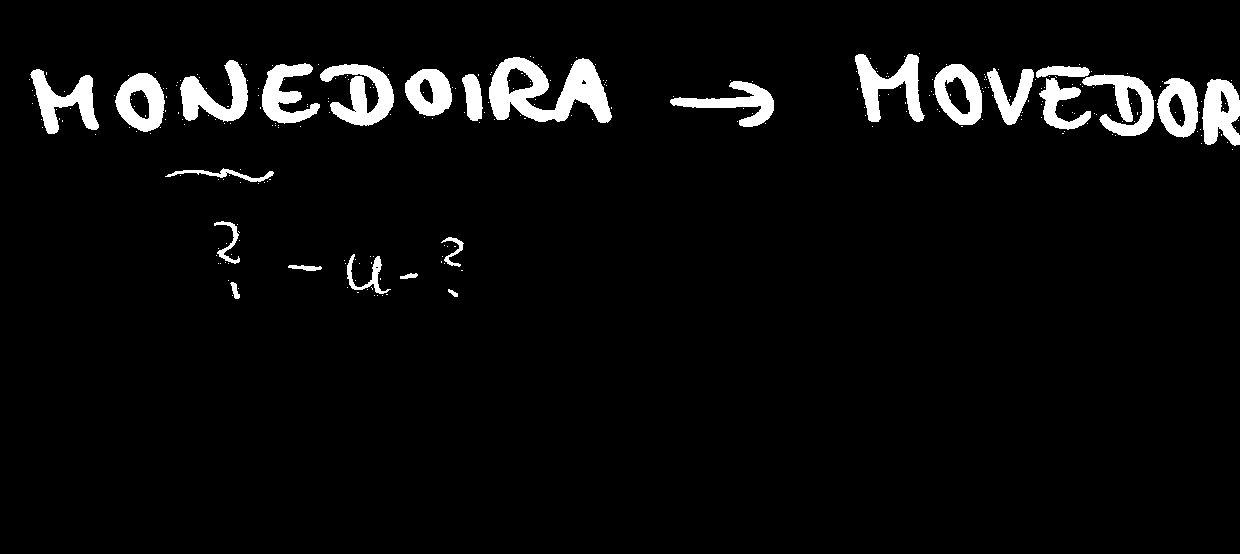 MONEDOIRA → MOVEDOR
? - u - ?